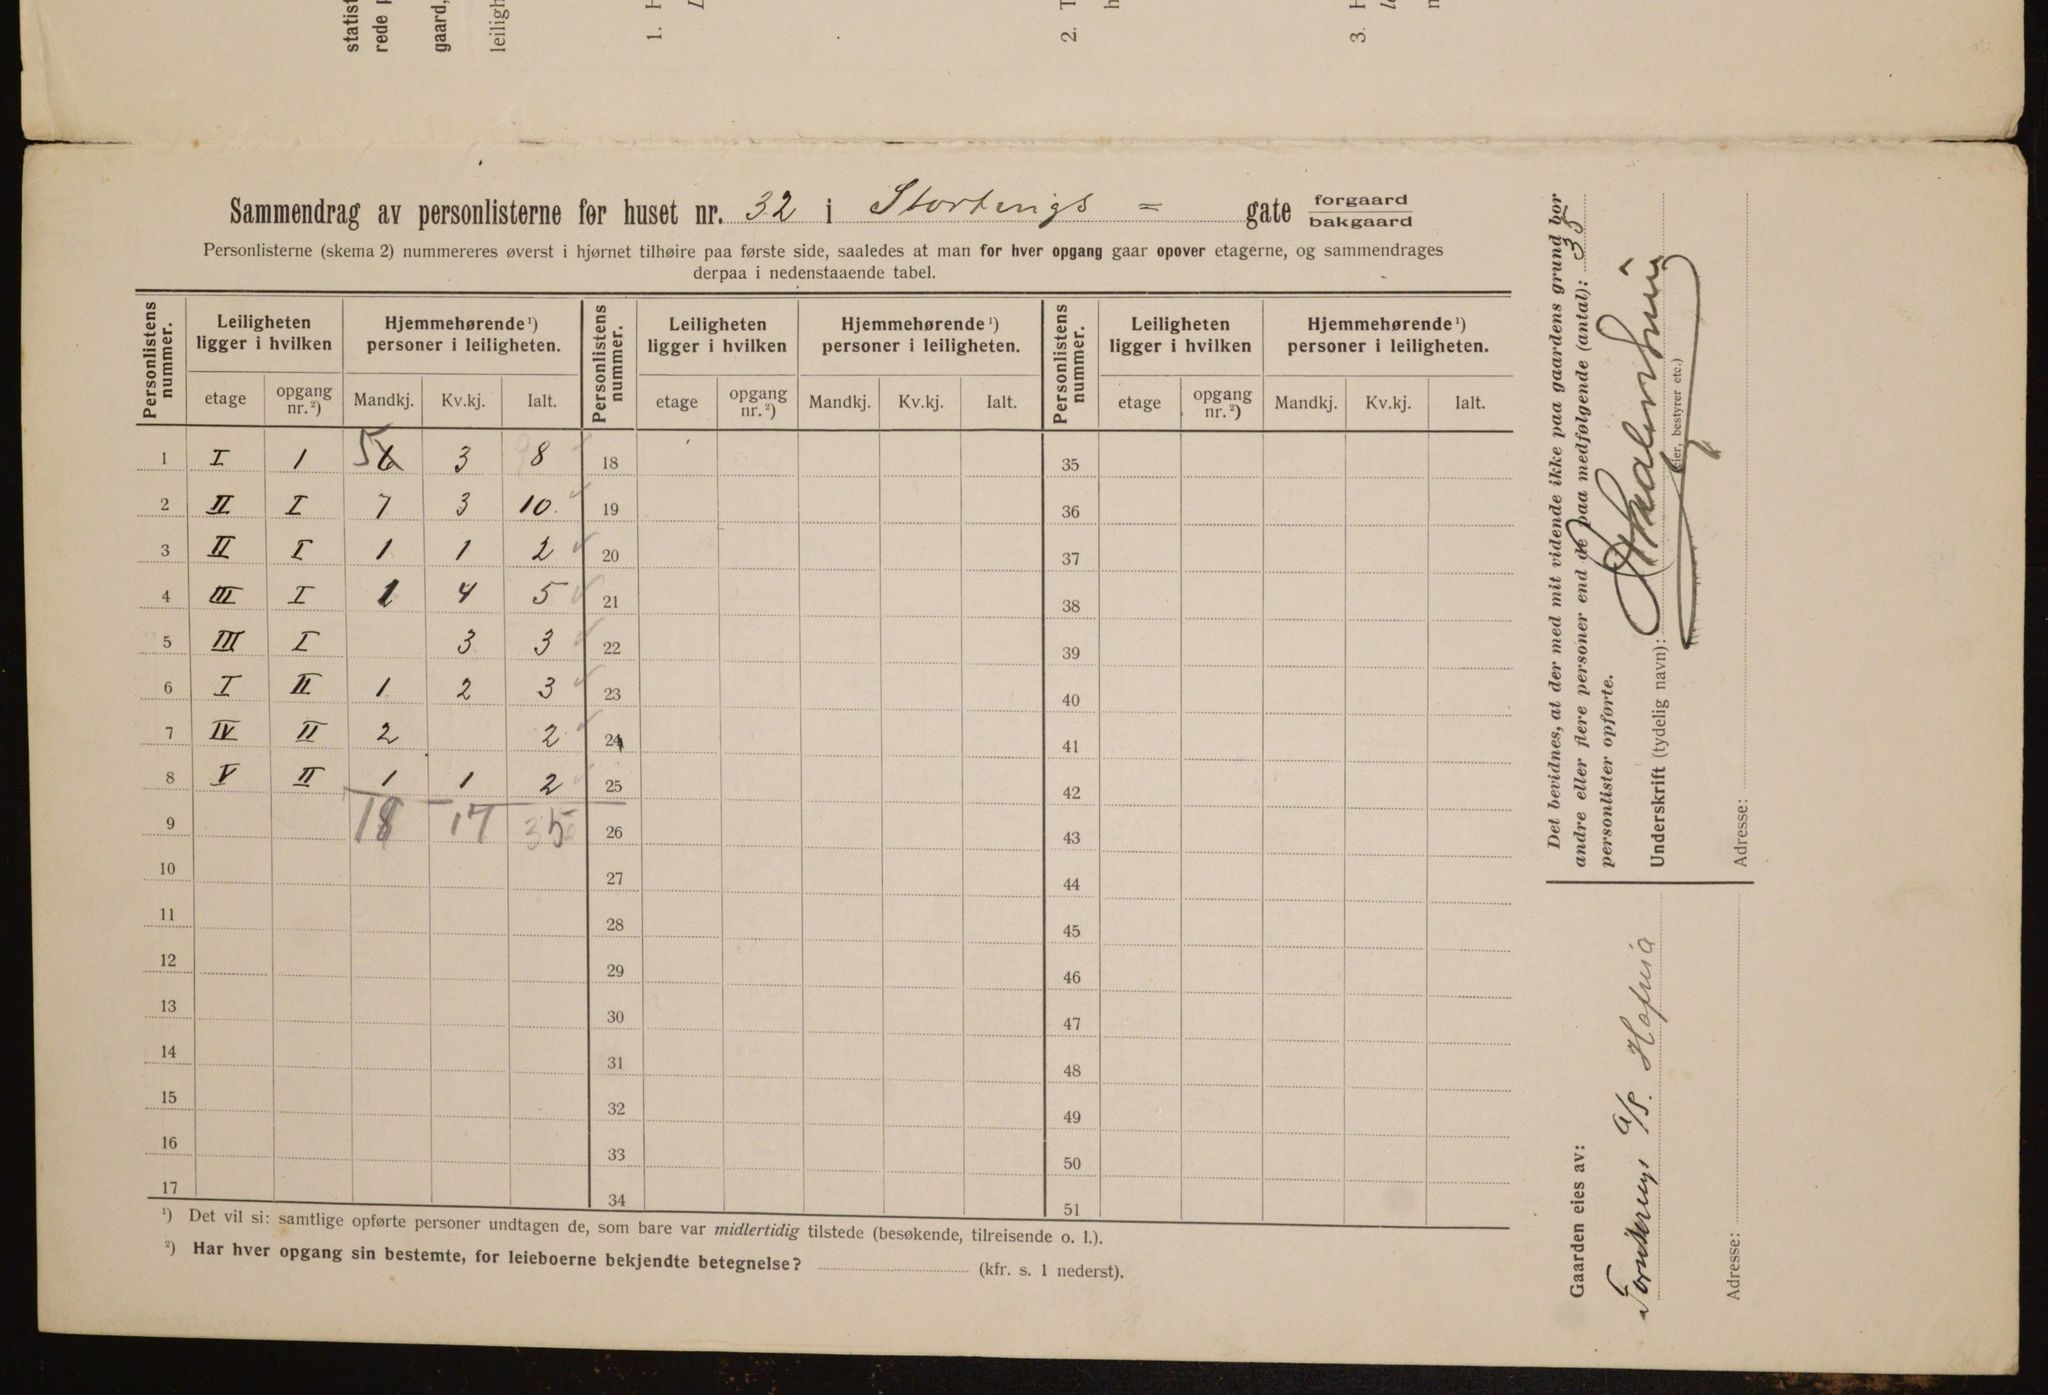 statist
rede p
gaard,
leiligh
1. H
2. T
h
3. H
Sammendrag av personlisterne før huset nr. 32 i Stortings = gate forgaard
bakgaard
Personlisterne (skema 2) nummereres øverst i hjørnet tilhøire paa første side, saaledes at man for hver opgang gaar opover etagerne, og sammendrages
derpaa i nedenstaaende tabel.
Personlistens nummer. Leiligheten ligger i hvilken Hjemmehørende ¹) personer i leiligheten. Personlistens nummer. Leiligheten ligger i hvilken Hjemmehørende ¹) personer i leiligheten. Personlistens nummer. Leiligheten ligger i hvilken Hjemmehørende ¹) personer i leiligheten.
etage opgang nr. ²) Mandkj. Kv.kj. Ialt. etage opgang nr. ²) Mandkj. Kv.kj. Ialt. etage opgang nr. ²) Mandkj. Kv.kj. Ialt.
1 I 1 5 6 3 8 18 35
2 II I 7 3 10. 19 36
3 II I 1 1 2 20 37
4 III I 1 4 5 21 38
5 III I 3 3 22 39
6 I II 1 2 3 23 40
7 IV II 2 2 24 41
8 V II 1 1 2 25 42
9 18 17 35 26 43
10 27 44
11 28 45
12 29 46
13 30 47
14 31 48
15 32 49
16 33 50
17 34 51
¹) Det vil si: samtlige opførte personer undtagen de, som bare var midlertidig tilstede (besøkende, tilreisende o. l.).
²) Har hver opgang sin bestemte, for leieboerne bekjendte betegnelse? (kfr. s. 1 nederst).
Det bevidnes, at der med mit vidende ikke paa gaardens grund bor
andre eller flere personer end de paa medfølgende (antal): 35
personlister opførte.
Underskrift (tydelig navn):
(eier, bestyrer etc.)
Adresse:
Gaarden eies av:
A/S. Hafnia
Adresse: